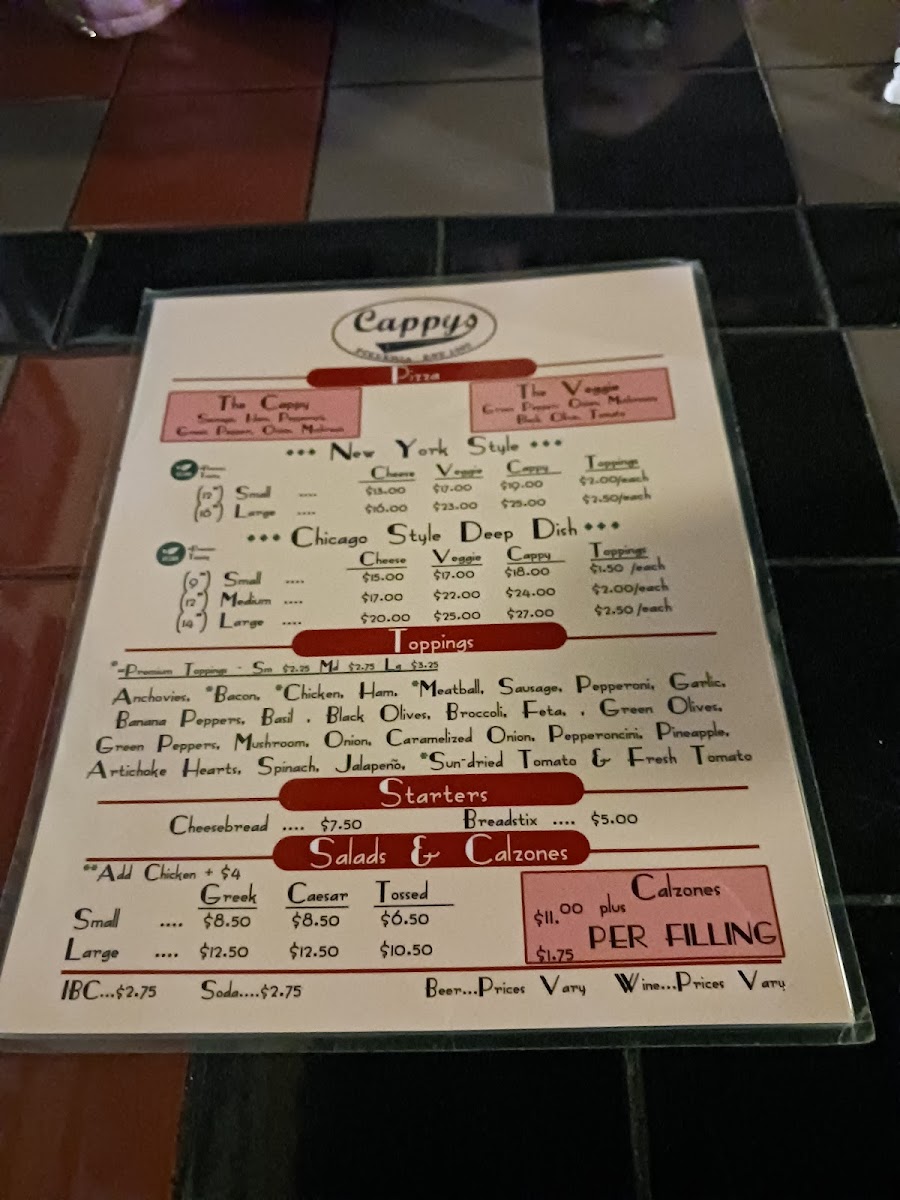 Cappys
PIZZERIA
Pizza
The Cappy
Sausage, Ham, Pepperoni,
Green Pepper, Onion, Mushroom
The Veggie
Green Pepper, Onion, Mushroom
Black Olive, Tomato
••• New York Style •••
Cheese Veggie Cappy Toppings
(12") Small .... $13.00 $17.00 $19.00 $2.00/each
(16") Large .... $16.00 $23.00 $25.00 $2.50/each
••• Chicago Style Deep Dish •••
Cheese Veggie Cappy Toppings
(9") Small .... $15.00 $17.00 $18.00 $1.50 /each
(12") Medium .... $17.00 $22.00 $24.00 $2.00/each
(14") Large .... $20.00 $25.00 $27.00 $2.50 /each
Toppings
*-Premium Toppings - Sm $2.25 Md $2.75 La $3.25
Anchovies, *Bacon, *Chicken, Ham, *Meatball, Sausage, Pepperoni, Garlic,
Banana Peppers, Basil , Black Olives, Broccoli, Feta, , Green Olives,
Green Peppers, Mushroom, Onion, Caramelized Onion, Pepperoncini, Pineapple,
Artichoke Hearts, Spinach, Jalapeño, *Sun-dried Tomato & Fresh Tomato
Starters
Cheesebread .... $7.50 Breadstix .... $5.00
Salads & Calzones
**Add Chicken + $4
Greek Caesar Tossed
Small .... $8.50 $8.50 $6.50
Large .... $12.50 $12.50 $10.50
Calzones
$11.00 plus
$1.75 PER FILLING
IBC...$2.75 Soda....$2.75 Beer...Prices Vary Wine...Prices Vary